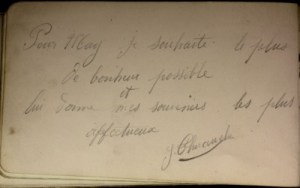 Pour May je souhaite le plus
de bonheur possible
et
lui donne mes souvenirs les plus
affectueux